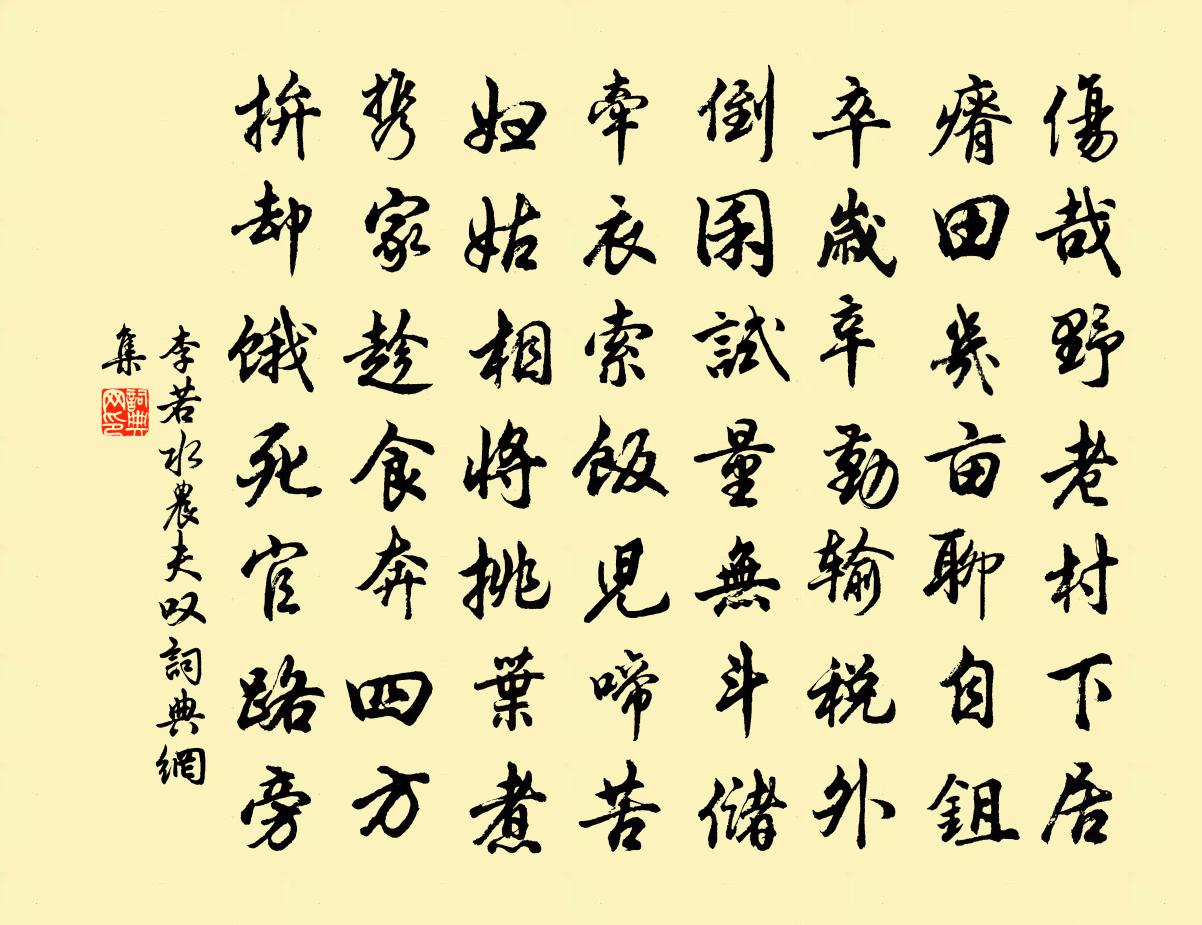 傷哉野老村下居
瘠田幾亩聊自鉏
卒歲辛勤输税外
倒囷試量無斗儲
牽衣索飯児啼苦
妇姑相將挑葉煮
携家趁食奔四方
拚却餓死官路旁
李若水農夫叹詞典網
集
詞典
网印